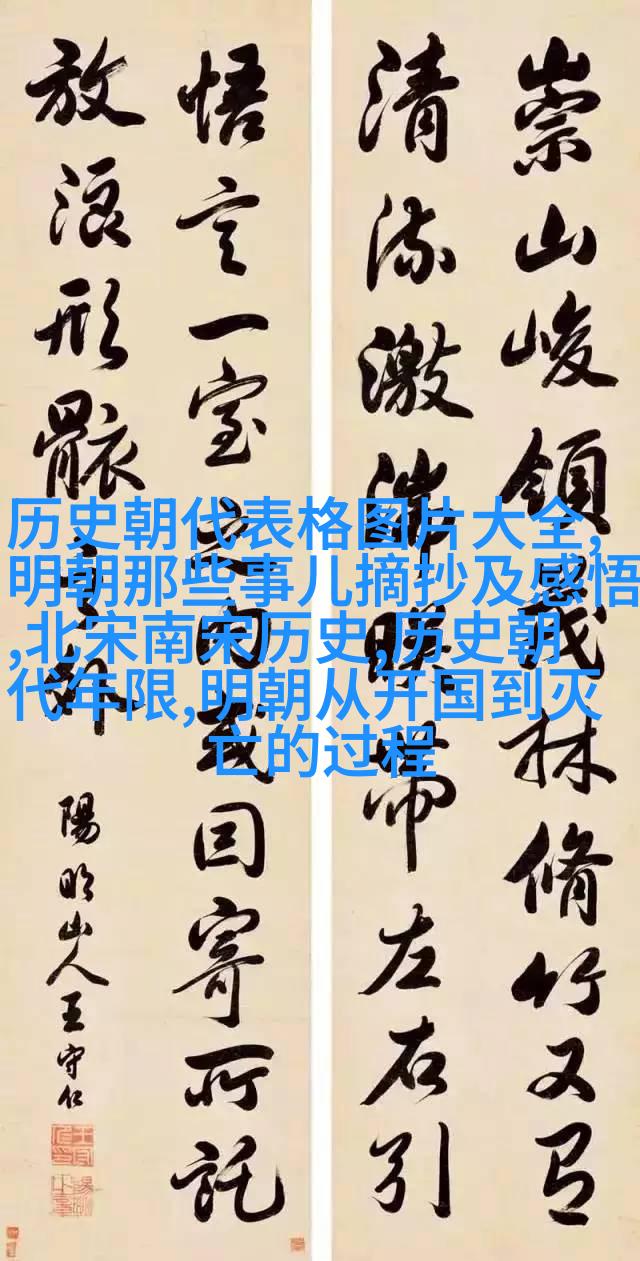 崇山峻領茂林脩竹又有
清流激湍暎帶左右引
悟言一室之内或因寄所託
放浪形骸之外
陽明山人王守仁
历史朝代表格图片大全,
明朝那些事儿摘抄及感悟
,北宋南宋历史,历史朝
代年限,明朝从开国到灭
亡的过程